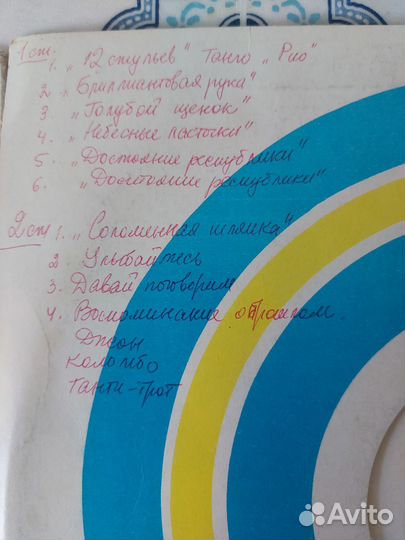 1 ст.
1. „12 стульев" Танго „Рио"
2. „Бриллиантовая рука"
3. „Голубой щенок"
4. „Небесные ласточки"
5. „Достояние республики"
6. „Достояние республики"
2 ст 1. „Соломенная шляпка"
2. Улыбайтесь
3. Давай поговорим
4. Воспоминание о былом.
Джон
Коломбо
Танти-трот
Avito